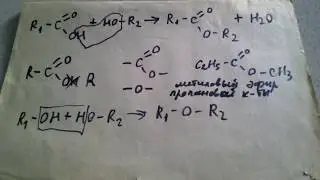 R₁-C(=O)OH + HO-R₂ → R₁-C(=O)O-R₂ + H₂O
R-C(=O)OH R -C(=O)O- C₂H₅-C(=O)O-CH₃
-O- метиловый эфир
пропановой к-ты
R₁-OH + HO-R₂ → R₁-O-R₂